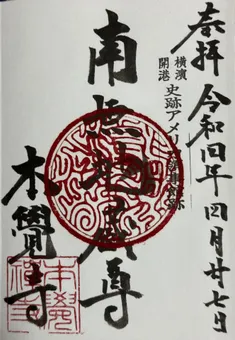 奉拝
令和四年四月廿七日
横濱開港
史跡アメリカ領事館跡
南無地蔵尊
本覺寺